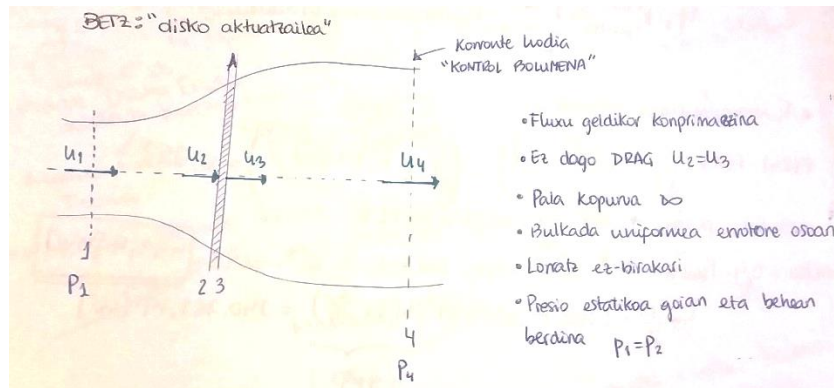 BETZ: "disko aktuatzailea"
Korronte hodia
"KONTROL BOLUMENA"
A
U1
U2
U3
U4
1
P1
2 3
4
P4
• Fluxu geldikor konprimaezina
• Ez dago DRAG U2=U3
• Pala kopurua ∞
• Bulkada uniformea errotore osoan
• Lorratz ez-birakari
• Presio estatikoa goian eta behean
berdina P1=P2